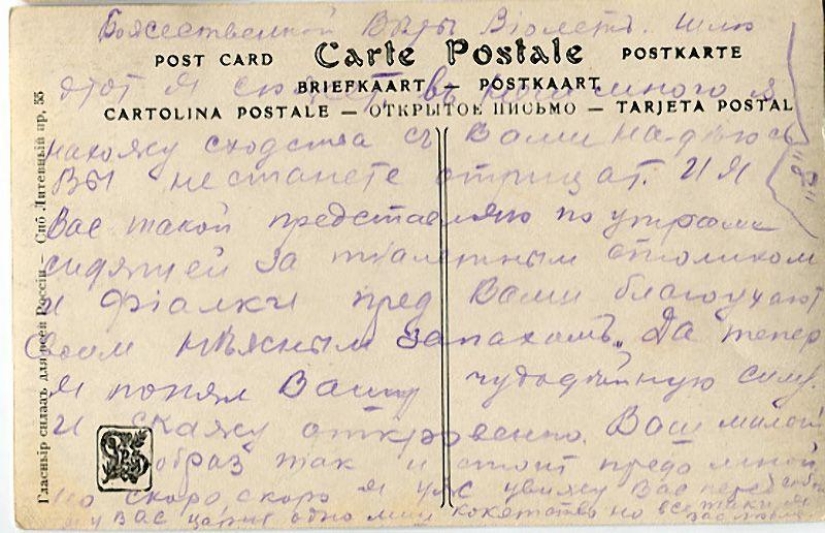 Божественной Виолетъ. шлю
POST CARD Carte Postale POSTKARTE
этот я въ много я
BRIEFKAART — POSTKAART
CARTOLINA POSTALE — ОТКРЫТОЕ ПИСЬМО — TARJETA POSTAL
нахожу сходства съ Вами на-дѣюсь
Вы не станете отрицат. И я
Вас такой представляю по утрами
сидящей за туалетным столиком
и фіалки пред Вами благоухают
своим нѣжным запахомъ. Да тепер
я понял Вашу чудодѣйную силу.
и скажу откровенно. Ваш милой
образ так и стоит предо мной
но скоро скоро я уже увижу Вас перед собой
у Вас царит одно лиш кокетство но все таки я
Вас люблю
Главный складъ для всей Россіи — Спб Литейный пр, 55